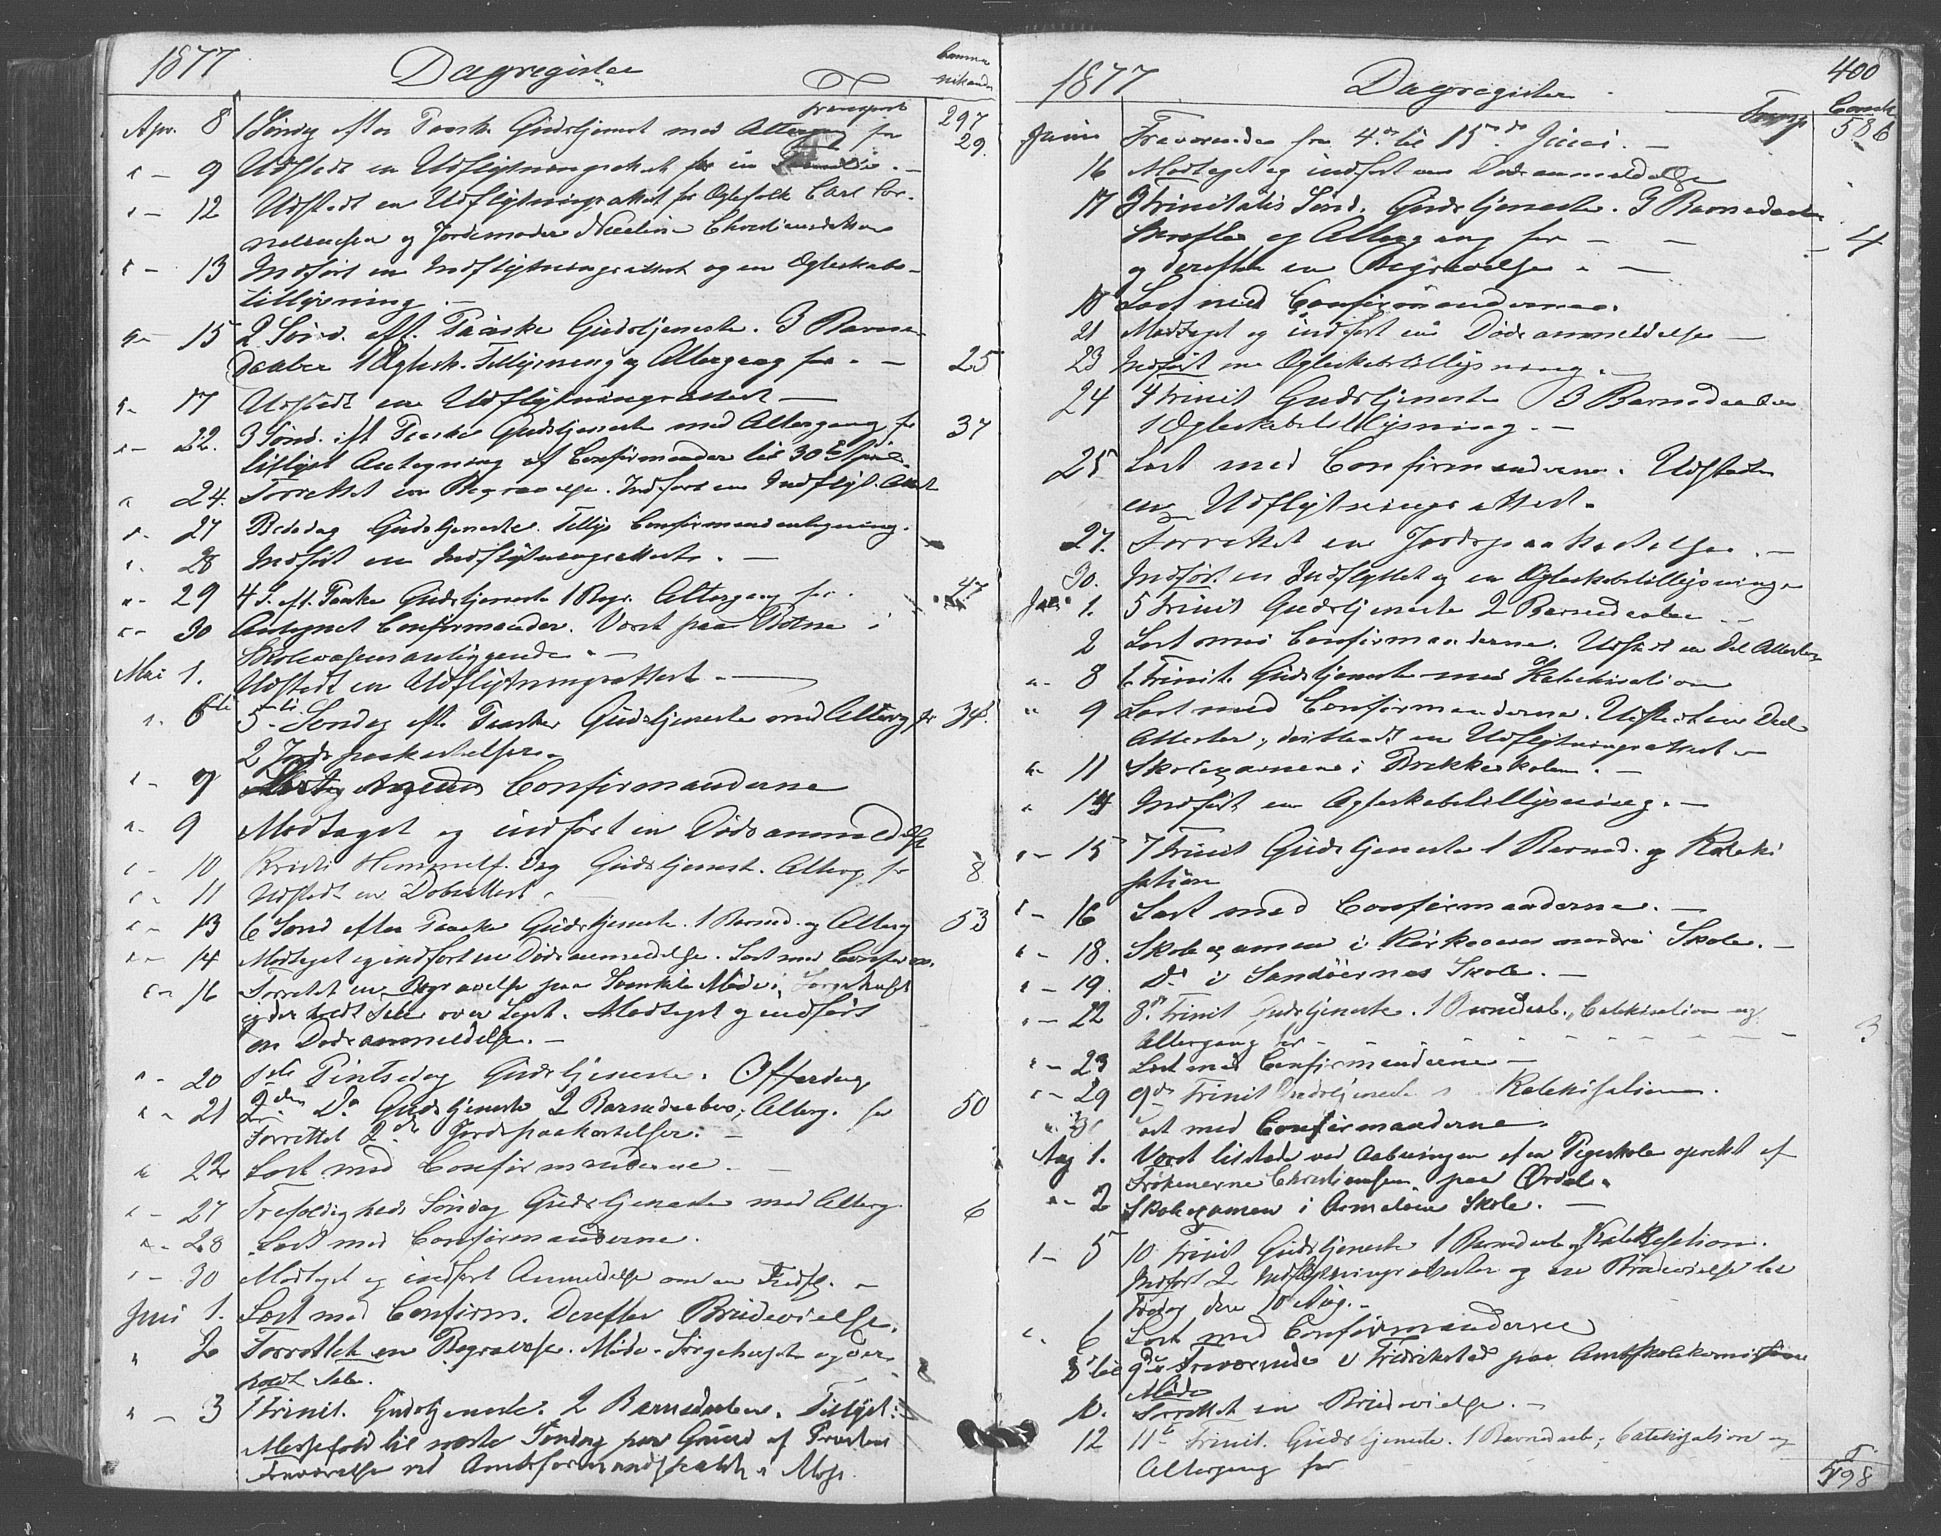 1877 Dagregister
Commu-
nikande
Transport 297
Apr. 8 1 Søndag efter Paaske Gudstjenest med Altergang for 29.
" - 9 Udstedt en Udflytningsattest for en
" - 12 Udstedt en Udflytningsattest for Ægtefolk Carl Cor-
neliussen og Jordemoder
" - 13 Indført en Indflytningsattest og en Ægteskabs-
tillysning. -
" - 15 2 Sønd. eft. Paaske Gudstjeneste. 3 Barne-
daaber 1 Ægtesk. Tillysning og Altergang for - - 25
" - 17 Udstedt en Udflytningsattest -
" - 22. 3 Sønd. eft Paaske Gudstjeneste med Altergang for 37
tillyst Antegning af Confirmander til 30te April.
" 24. Forrettet en Begravelse. Indført en Indflyt. Attest
" - 27 Bededag Gudstjeneste. Tillys Confirmandantegning.
" . 28 Indført en Indflytningsattest. -
" - 29 4 S. eft. Paaske Gudstjeneste 1 Begr. Altergang for. 47
" - 30 Antegnet Confirmander. Været paa Botne i
Skolevæsensanliggende. -
Mai 1. Udstedt en Udflytningsattest. -
" . 6te 5te Søndag eft. Paaske Gudstjeneste med Alterg for 34.
2 Jordspaakastelser.
" - 7 Confirmanderne
" - 9 Modtaget og indført en Dødsanmeldelse
" - 10 Kristi Himmelf. Dag Gudstjenest. Alterg for 8
" - 11 Udstedt en Dobsattest. -
" - 13 6 Sønd efter Paaske Gudstjeneste. 1 Barned. og Alterg 53
" - 14 Modtaget og indført en Dødsanmeldelse. Læst med Confirm.
" - 16 Forrettet en Begravelse paa Møde i Sørgehuset
og der holdt Tale over Liget. Modtaget og indført
en Dødsanmeldelse. -
" - 20 1ste Pintsedag Gudstjeneste. Offerdag
" - 21 2den Do Gudstjeneste 2 Barnedaaber, Alterg. for 50
Forrettet 2de Jordspaakastelser. -
" 22 Læst med Confirmanderne. -
" - 27 Trefoldigheds Søndag Gudstjeneste med Alterg 6
" - 28 Læst med Confirmanderne.
" - 30 Modtaget og indført Anmeldelse om en Fødsl. -
Juni 1. Læst med Confirm. Derefter Brudevielse.
" 2 Forrettet en Begravelse. Møde i Sørgehuset og der
holdt Tale.
" - 3 1 Trinit. Gudstjeneste. 2 Barnedaaber. Tillyst:
Messefald til næste Søndag paa Grund af Præstens
Fraværelse ved Amtsformandskabet i Moss.
1877 Dagregister. 400
Transp Comck 586
Juni Fraværende fra 4de til 15de do Juni. -
16 Modtaget og indført en Dødsanmeldelse
17 3 Trinitatis Sønd. Gudstjeneste. 3 Barnedaaber
Skrifte og Altergang for - - - 4
og derefter en Begravelse. -
18 Læst med Confirmanderne.
21 Modtaget og indført en Dødsanmeldelse -
23 Indført en Ægteskabstillysning. -
24 4 Trinit Gudstjeneste 3 Barnedaaber
1 Ægteskabstillysning. -
25 Læst med Confirmanderne. Udstedt
en Udflytningsattest.
27. Forrettet en Jordspaakastelse. -
30. Indført en Indflyttet og en Ægteskabstillysning.
1. 5 Trinit Gudstjeneste 2 Barnedaaber
2 Læst med Confirmanderne. Udstedt en Del Attester
" . 8 6 Trinit. Gudstjeneste med Katekisation
" 9 Læst med Confirmanderne. Udstedt en Del
Attester, deriblandt en Udflytningsattest -
" - 11 Skoleexamen i Brekkeskolen. -
" 14 Indført en Ægteskabstillysning. -
" - 15 7 Trinit Gudstjeneste 1 Barned. og Kateki
sation
" - 16 Læst med Confirmanderne. -
" - 18. Skoleexamen i Kirkeøens nordre Skole. -
" - 19. Do i Sandøernes Skole. -
" - 22 8de Trinit Gudstjeneste. 1 Barnedaab., Catekisation og
Altergang for - - - - - - 3
" - 23 Læst med Confirmanderne -
" - 29 9de Trinit Gudstjeneste Katekisation.
Læst med Confirmanderne.
Aug 1. Været tilstede ved Aabningen af en Pigeskole oprettet af
Frøknerne Christiansen paa Ørdal.
" - 2 Skoleexamen i Skole. -
" - 5 10 Trinit Gudstjeneste 1 Barnedaab og Katekisation.
Indført 2 Indflytningsattester og en Brudevielse til
Fredag den 10 Aug. -
" . 6 Læst med Confirmanderne
8de til 9de Fraværende i Fredrikstad paa Amtsskolekommissions
Møde
10. Forrettet en Brudevielse. -
12 11te Trinit. Gudstjeneste. 1 Barnedaab, Catekisation og
Altergang for
T. 598